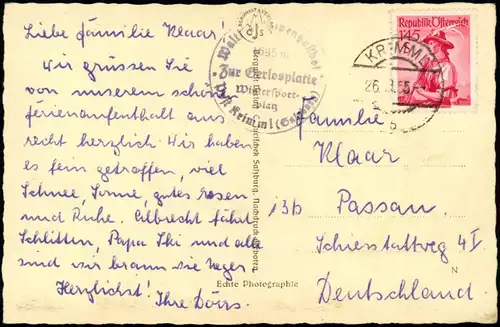 Liebe Familie Maar!
Wir grüssen Sie
von unserem schönen
Ferienaufenthalt aus
recht herzlich. Wir haben
es fein getroffen, viel
Schnee, Sonne, gutes Essen
und Ruhe. Albrecht fährt
Schlitten, Papa Ski und alle
sind wir braun wie Neger.
Herzlichst! Ihre Dörrs.
1695 m
"Zur Gerlosplatte"
Wintersport-
platz
Post Krimml (Salzburg)
Echte Photographie
Republik Österreich
1.45
S
KRIMML
26.3.55
Familie
Maar
13b Passau
Schiesstattweg 4 I
N
Deutschland